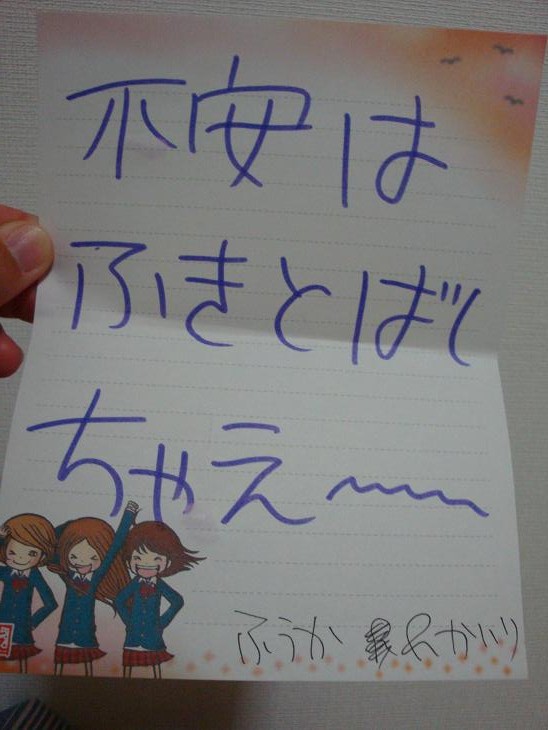 不安は
ふきとばし
ちゃえ〜
ふうか &かいり